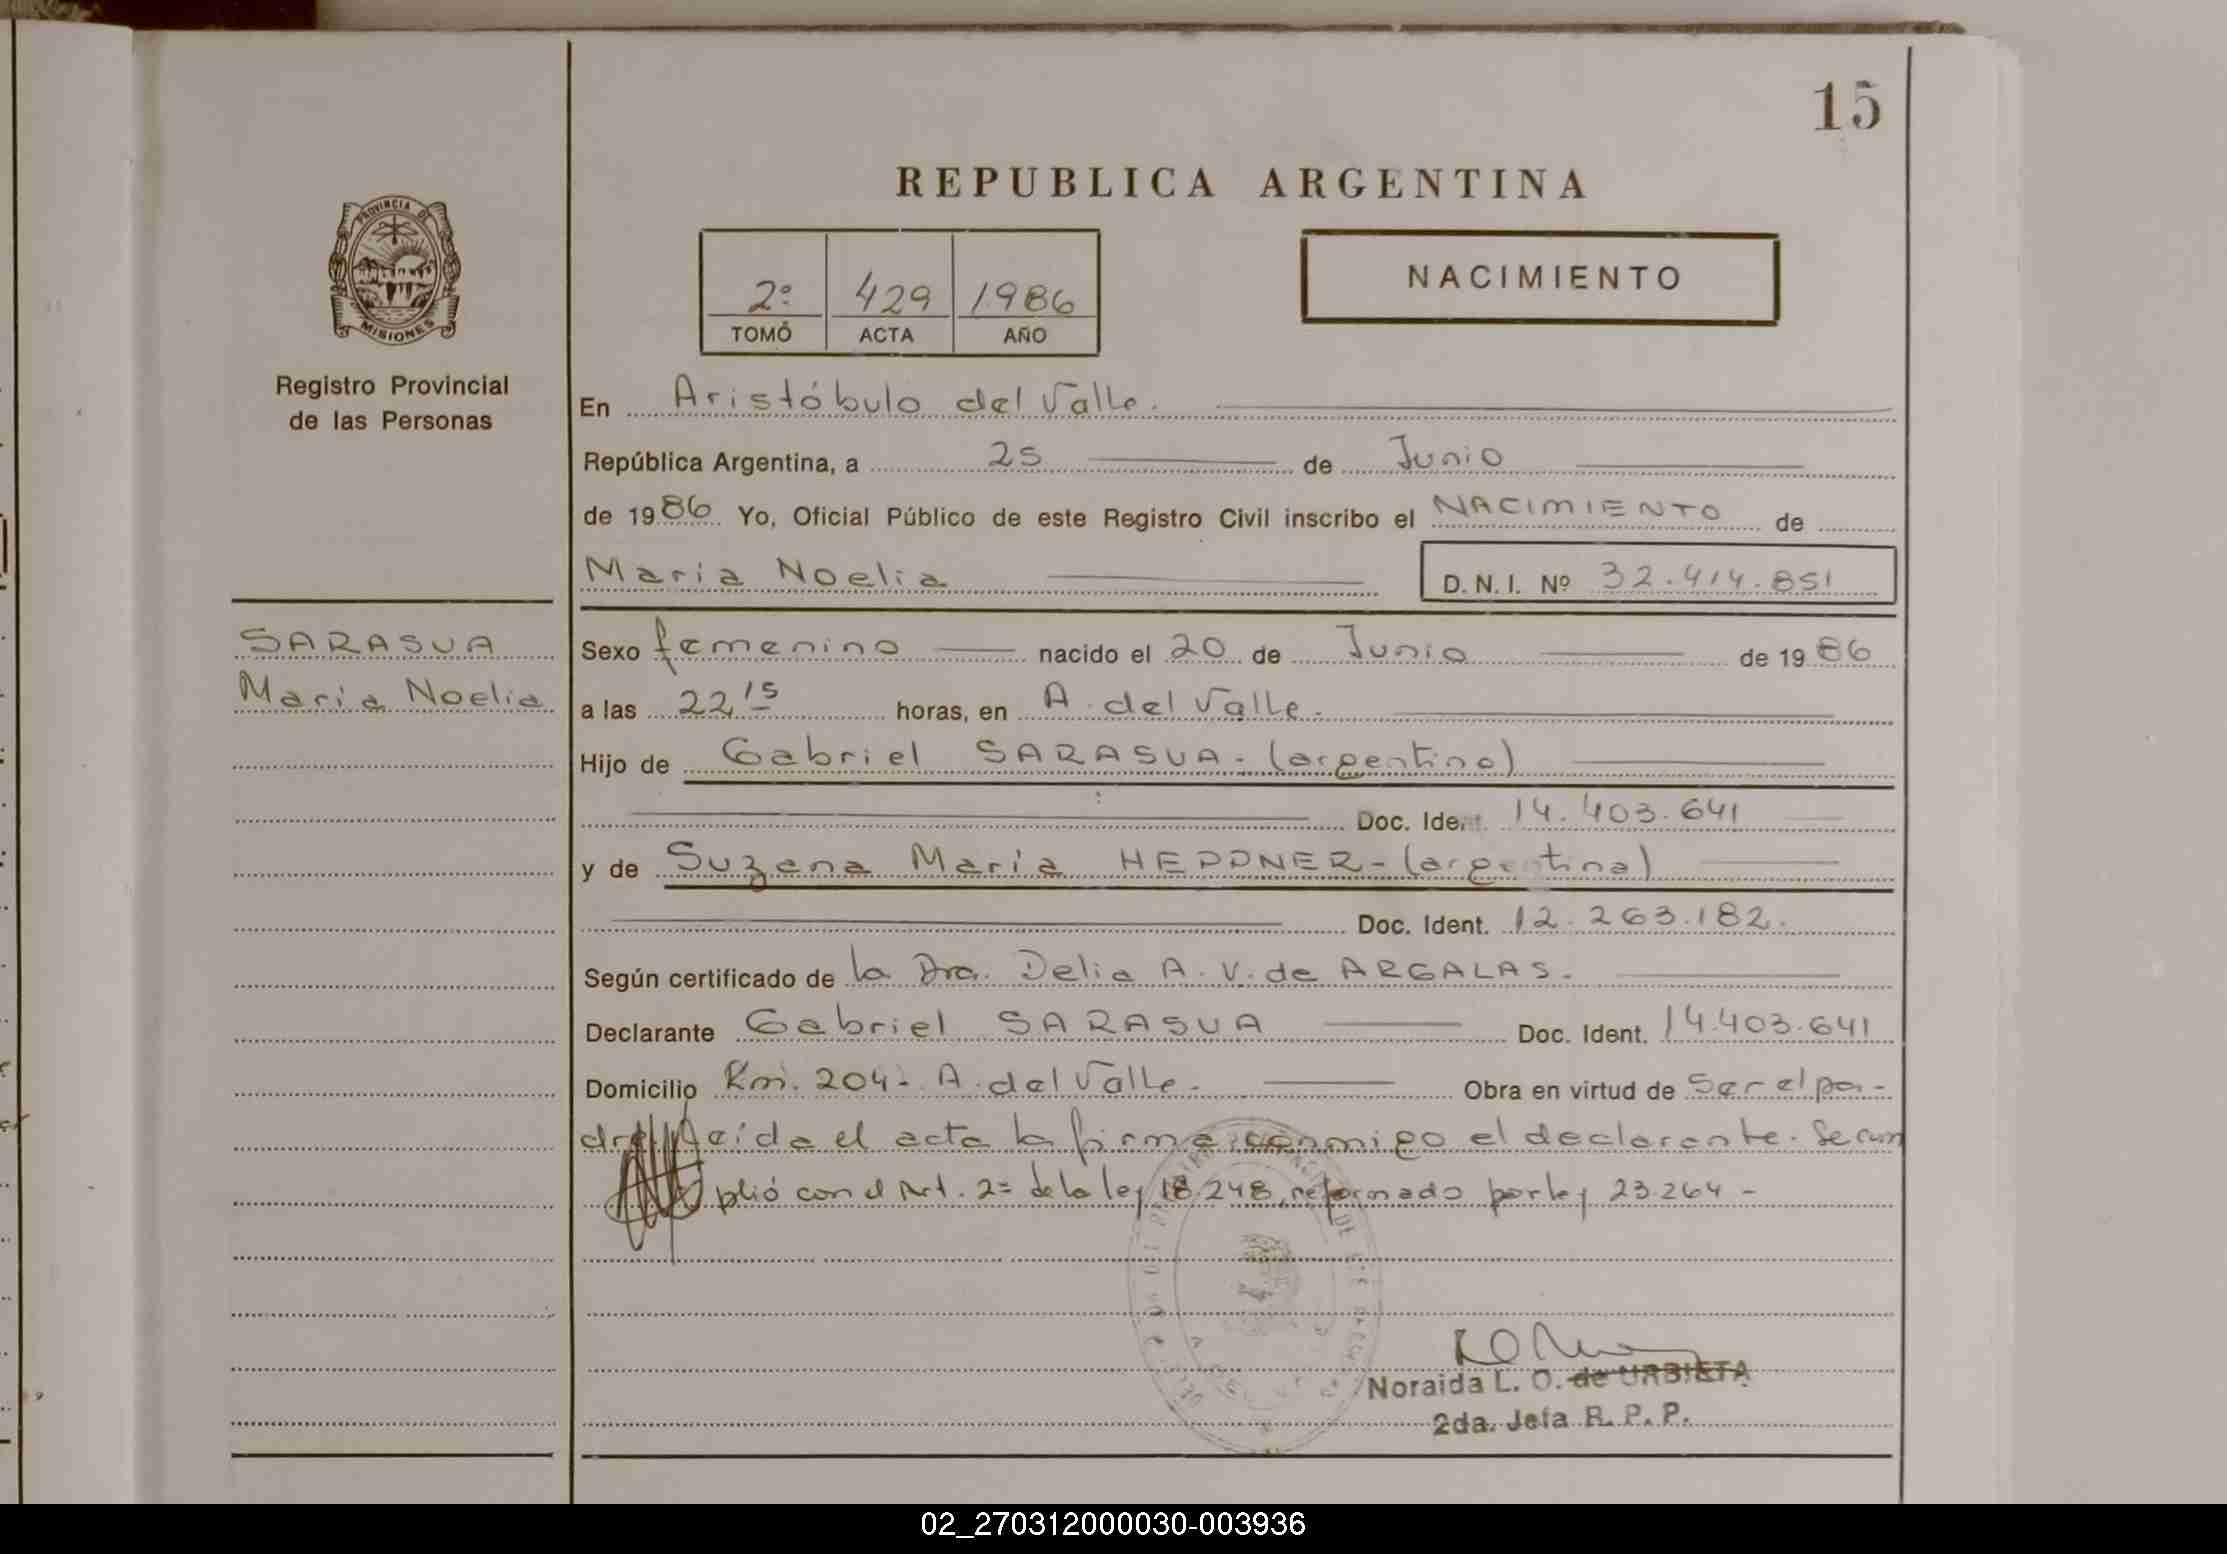 15
REPUBLICA ARGENTINA
PROVINCIA DE
MISIONES
Registro Provincial
de las Personas
2º 429 1986
TOMO ACTA AÑO
NACIMIENTO
En Aristóbulo del Valle.
República Argentina, a 25 de Junio
de 1986 Yo, Oficial Público de este Registro Civil inscribo el NACIMIENTO de
María Noelia D. N. I. Nº 32.414.851
SARASUA
María Noelia
Sexo femenino nacido el 20 de Junio de 1986
a las 22 15 horas, en A. del Valle.
Hijo de Gabriel SARASUA - (argentino)
Doc. Ident. 14.403.641
y de Suzana María HEPPNER - (argentina)
Doc. Ident. 12.263.182.
Según certificado de la Dra. Delia A. V. de ARGALAS.
Declarante Gabriel SARASUA Doc. Ident. 14.403.641
Domicilio Km. 204 - A. del Valle. Obra en virtud de ser el pa-
dre. Leída el acta la firma conmigo el declarante. Se cum
plió con el Art. 2= de la ley 18.248, reformado por ley 23.264 -
Noraida L. O. de URBIETA
2da. Jefa R. P. P.
02_270312000030-003936